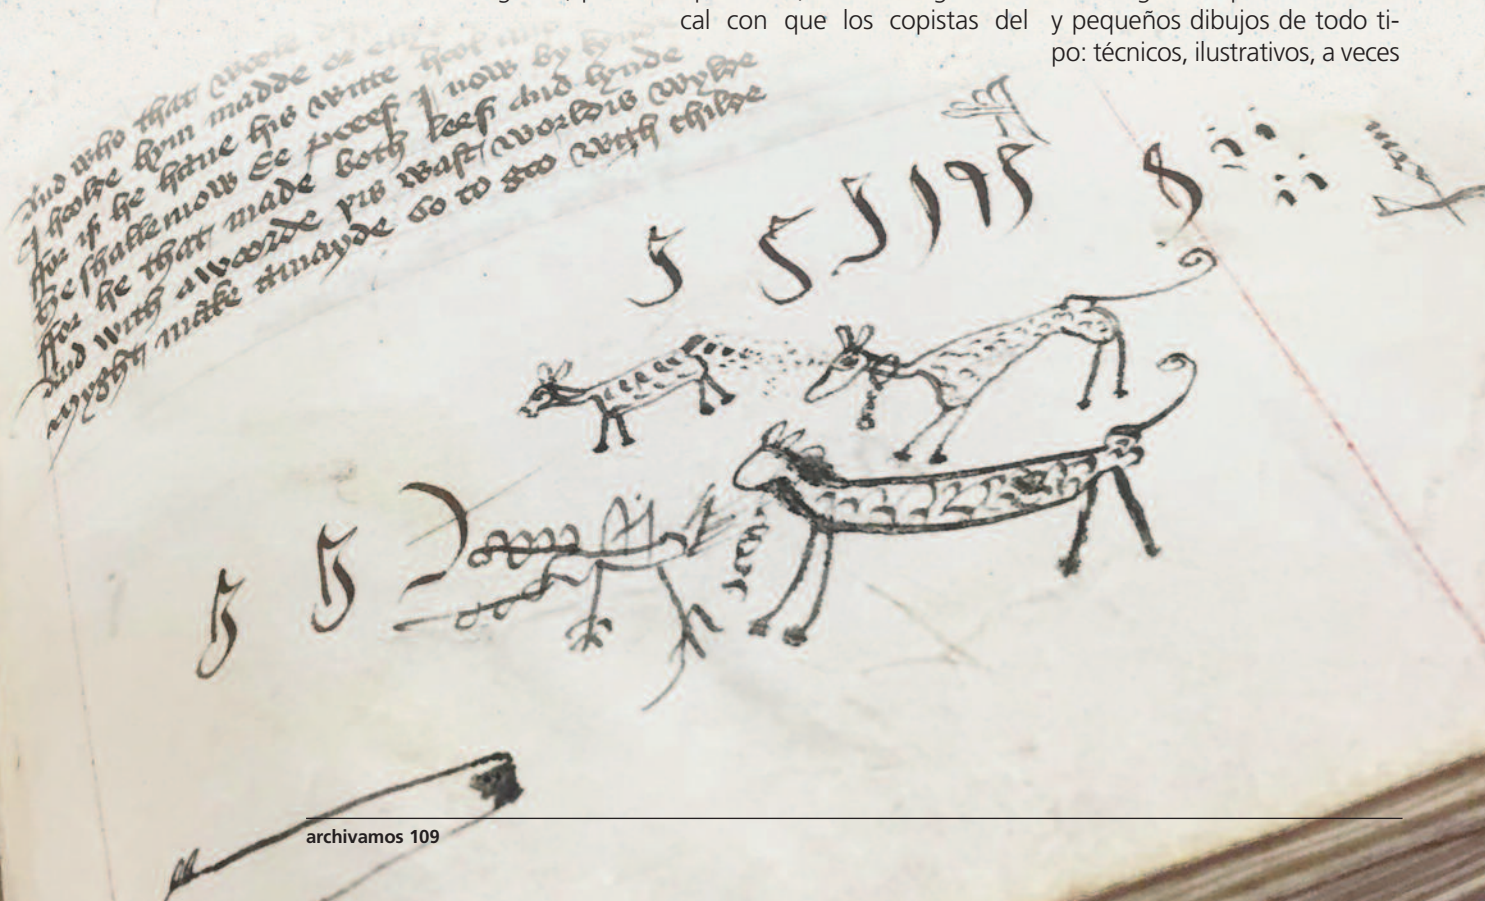 cal con que los copistas del
y pequeños dibujos de todo ti-
po: técnicos, ilustrativos, a veces
And who that woolde
I hoolde hym madde or
ffor if he haue his witte hool and
he shalle mow se preef I now by kynde
ffor he that made both leef and lynde
And with a woorde yis wast worldis wylde
myght make a mayde so to goo with childe
archivamos 109